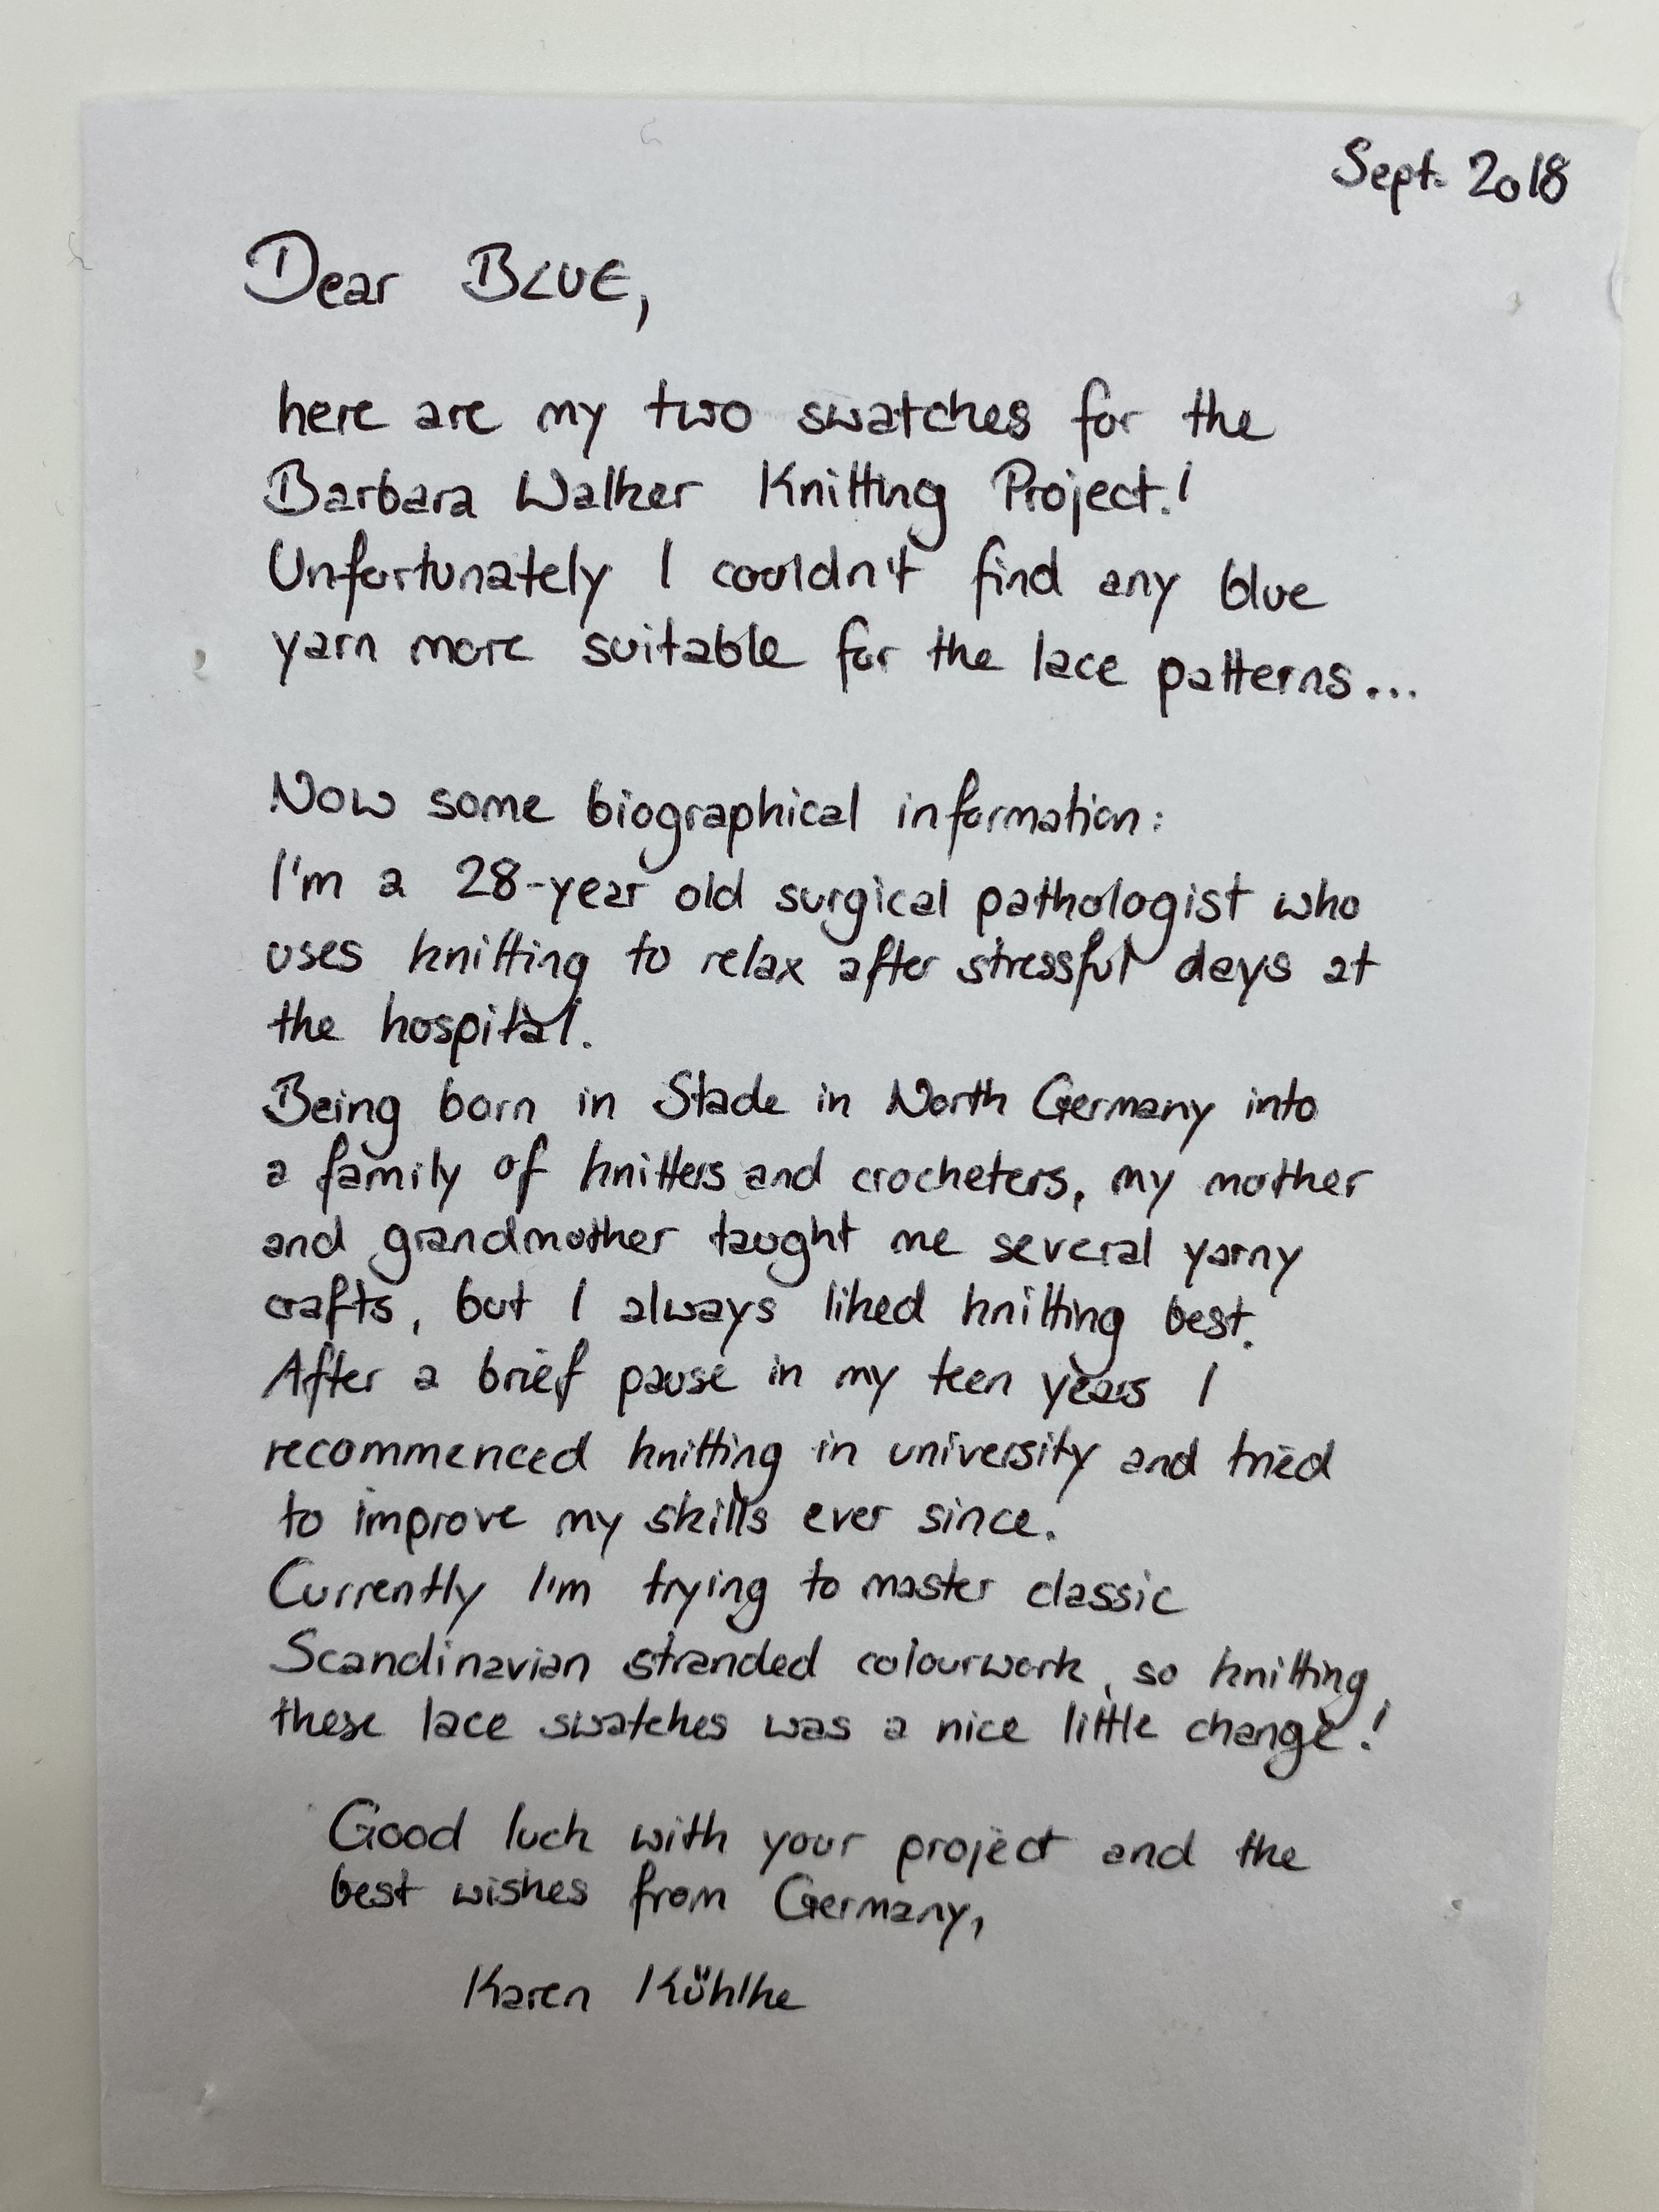 Sept. 2018
Dear BLUE,
here are my two swatches for the
Barbara Walker Knitting Project!
Unfortunately I couldn't find any blue
yarn more suitable for the lace patterns...
Now some biographical information:
I'm a 28-year old surgical pathologist who
uses knitting to relax after stressful days at
the hospital.
Being born in Stade in North Germany into
a family of knitters and crocheters, my mother
and grandmother taught me several yarny
crafts, but I always liked knitting best.
After a brief pause in my teen years I
recommenced knitting in university and tried
to improve my skills ever since.
Currently I'm trying to master classic
Scandinavian stranded colourwork, so knitting
these lace swatches was a nice little change!
Good luck with your project and the
best wishes from Germany,
Karen Kühlke